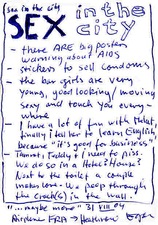 sex in the city
SEX in the
city
- there ARE big posters
warning about AIDS
stickers to sell condoms
- the bar girls are very
young, good looking / moving
sexy and touch you every-
where
- I have a lot of fun with
finally I tell her to learn English,
because "it's good for business".
- , Teddy + I need to piss.
We do so in a Hotel?House?
Next to the toilet a couple
makes love - We peep through
the crack(s) in the wall.
"... maybe more" 31
Airdame FRA →